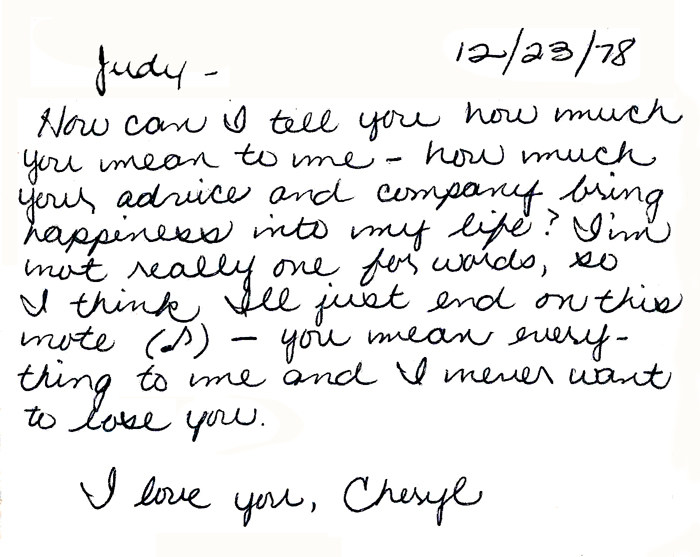 Judy - 12/23/78
How can I tell you how much
you mean to me - how much
your advice and company bring
happiness into my life? I'm
not really one for words, so
I think I'll just end on this
note (♪) - you mean every-
thing to me and I never want
to lose you.
I love you, Cheryl